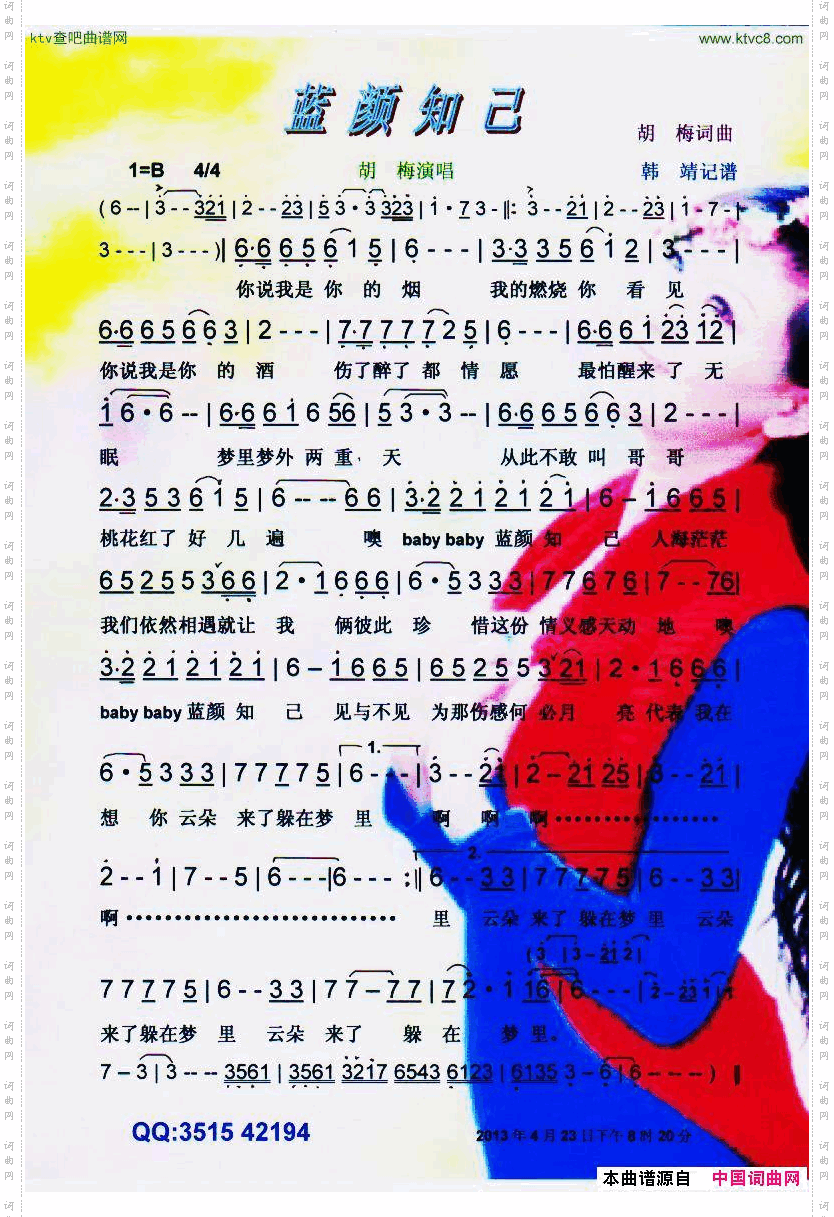 ktv查吧曲谱网 www.ktvc8.com
蓝颜知己
胡 梅词曲
1=B 4/4 胡 梅演唱 韩 靖记谱
(6--|3--321|2--23|53·3323|1·73-|:3--21|2--23|1-7-|
3---|3---)|6·665615|6---|3·3335612|3---|
你说我是 你 的 烟 我的燃烧 你 看 见
6·665663|2---|7·7777725|6---|6·6612312|
你说我是你 的 酒 伤了醉了 都 情 愿 最怕醒来 了 无
16·6--|6·661656|53·3--|6·665663|2---|
眠 梦里梦外 两 重 天 从此不敢 叫 哥 哥
2·353615|6----66|3·22121221|6-1665|
桃花红了 好 几 遍 噢 baby baby 蓝颜 知 己 人海茫茫
65255366|2·1666|6·5333|77676|7--76|
我们依然相遇就让 我 俩彼此 珍 惜这份 情义感天动 地 噢
3·22121221|6-1665|65255321|2·1666|
baby baby 蓝颜 知 己 见与不见 为那伤感何 必月 亮 代表 我在
1.
6·5333|77775|6---|3--21|2-2125|3--21|
想 你 云朵 来了躲在梦 里 啊 啊 啊··················
2.
2--1|7--5|6---|6---:||6--33|77775|6--33|
啊···························· 里 云朵 来了 躲在梦 里 云朵
(3|3-212|
77775|6--33|77-77|72·116|6---|2-2311|
来了躲在梦 里 云朵 来了 躲 在 梦 里。
7-3|3----3561|3561321765436123|61353-6|6----)||
QQ:3515 42194
2013年4月23日下午8时20分
本曲谱源自 中国词曲网